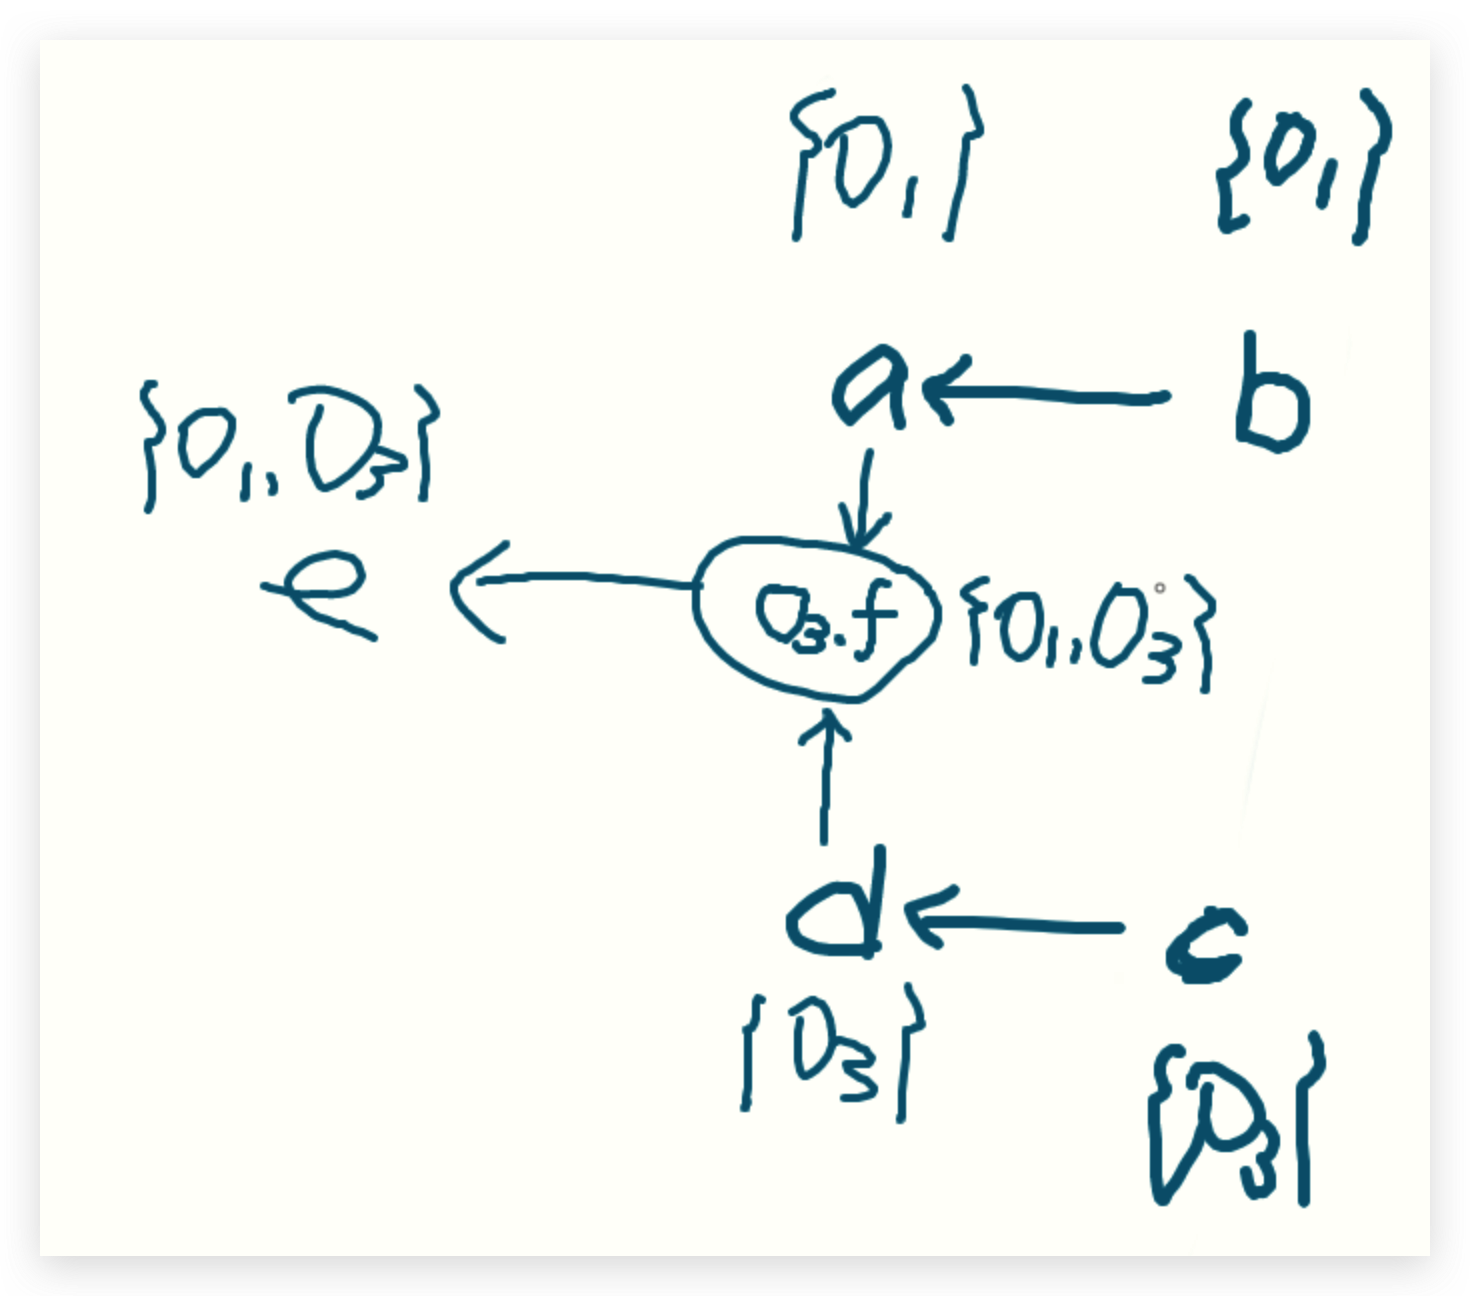 {O₁} {O₁}
a b
{O₁, O₃}
e O₃.f {O₁, O₃}
d c
{O₃}
{O₃}